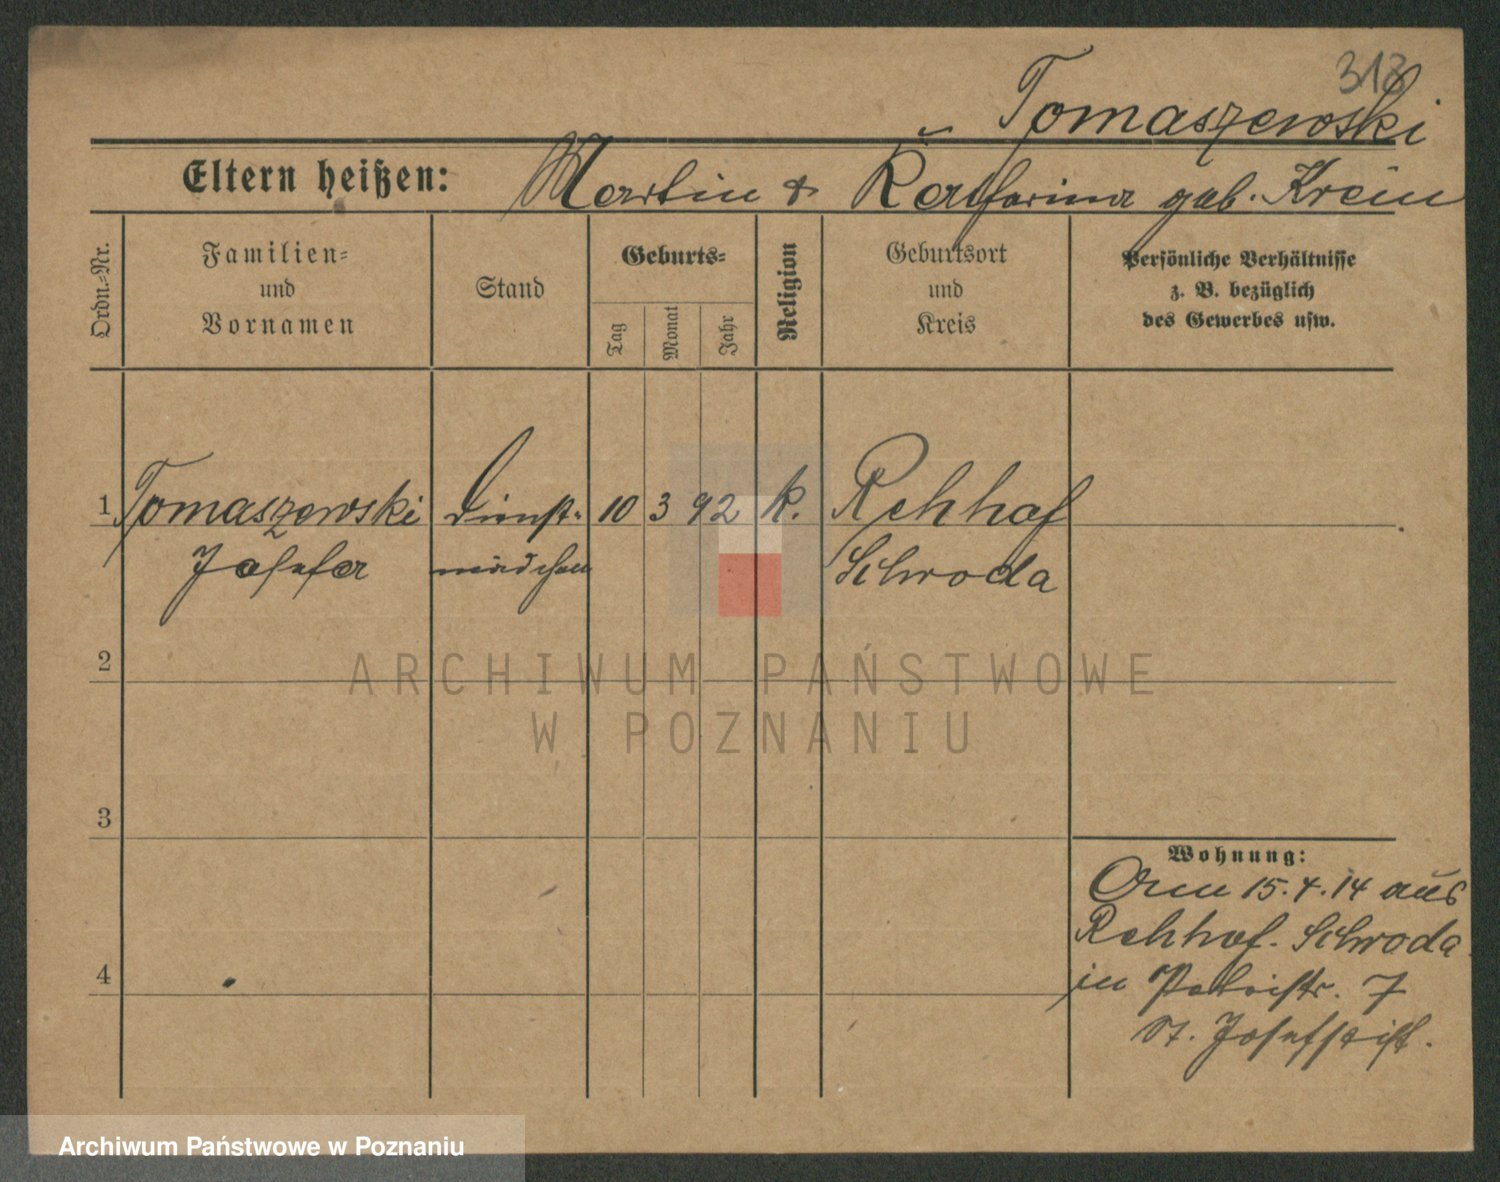 318
Tomaszewski
Eltern heißen: Martin & Katharina geb. Krein
Ordn.-Nr.
Familien-
und
Vornamen
Stand
Geburts-
Tag
Monat
Jahr
Religion
Geburtsort
und
Kreis
Persönliche Verhältnisse
z. B. bezüglich
des Gewerbes usw.
1 Tomaszewski Dienst- 10 3 92 k. Rehhof
Josefa mädchen Schroda
2
3
4
Wohnung:
15.4.14 aus
Rehhof. Schroda
in 7
St. Josefstift.
ARCHIWUM PAŃSTWOWE
W POZNANIU
Archiwum Państwowe w Poznaniu